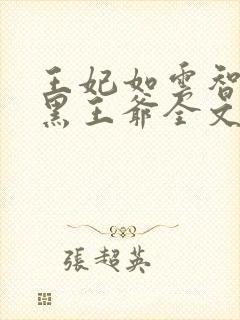 王妃如雲智
黑王爺全文
張超英